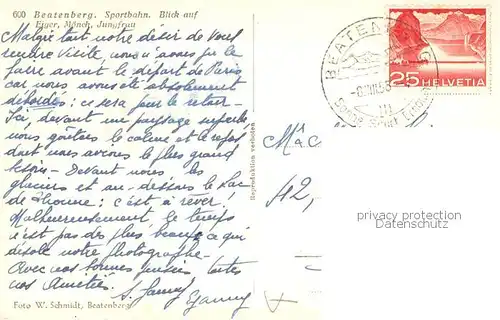 600 Beatenberg. Sportbahn. Blick auf
Eiger, Mönch, Jungfrau
Malgré tout notre désir de vous
rendre visite, nous n'avons pu le
faire avant le départ de Paris
car nous avons été absolument
débordés : ce sera pour le retour -
Ici, devant un paysage superbe,
nous goûtons le calme et le repos
dont nous avions le plus grand
besoin - Devant nous les
glaciers et au-dessous le Lac
de Thoune : c'est à rêver,
Malheureusement le temps
n'est pas des plus beaux ce qui
désole notre photographe -
Avec nos bonnes pensées, toutes
nos Amitiés.
Foto W. Schmidt, Beatenberg
Reproduktion verboten
BEATENBERG
25 HELVETIA
M
42,
privacy protection
Datenschutz